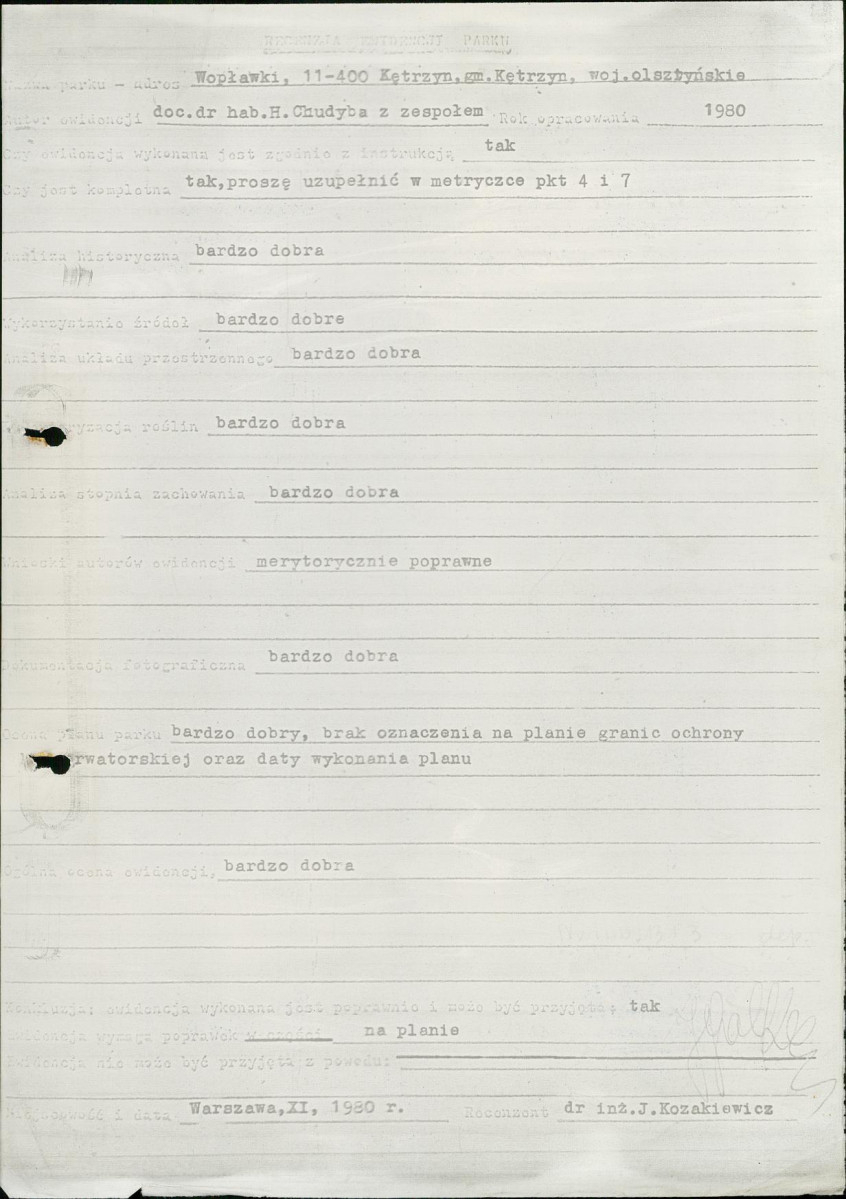 RECENZJA EWIDENCJI PARKU
Nazwa parku - adres Wopławki, 11-400 Kętrzyn,gm.Kętrzyn, woj.olsztyńskie
Autor ewidencji doc.dr hab.H.Chudyba z zespołem Rok opracowania 1980
Czy ewidencja wykonana jest zgodnie z instrukcją tak
Czy jest kompletna tak,proszę uzupełnić w metryczce pkt 4 i 7
Analiza historyczna bardzo dobra
Wykorzystanie źródeł bardzo dobre
Analiza układu przestrzennego bardzo dobra
roślin bardzo dobra
Analiza stopnia zachowania bardzo dobra
Wnioski autorów ewidencji merytorycznie poprawne
Dokumentacja fotograficzna bardzo dobra
Ocena planu parku bardzo dobry, brak oznaczenia na planie granic ochrony
rwatorskiej oraz daty wykonania planu
Ogólna ocena ewidencji, bardzo dobra
Konkluzja: ewidencja wykonana jest poprawnie i może być przyjęta: tak
Ewidencja wymaga poprawek w części na planie
Ewidencja nie może być przyjęta z powodu:
Miejscowość i data Warszawa,XI, 1980 r. Recenzent dr inż.J.Kozakiewicz